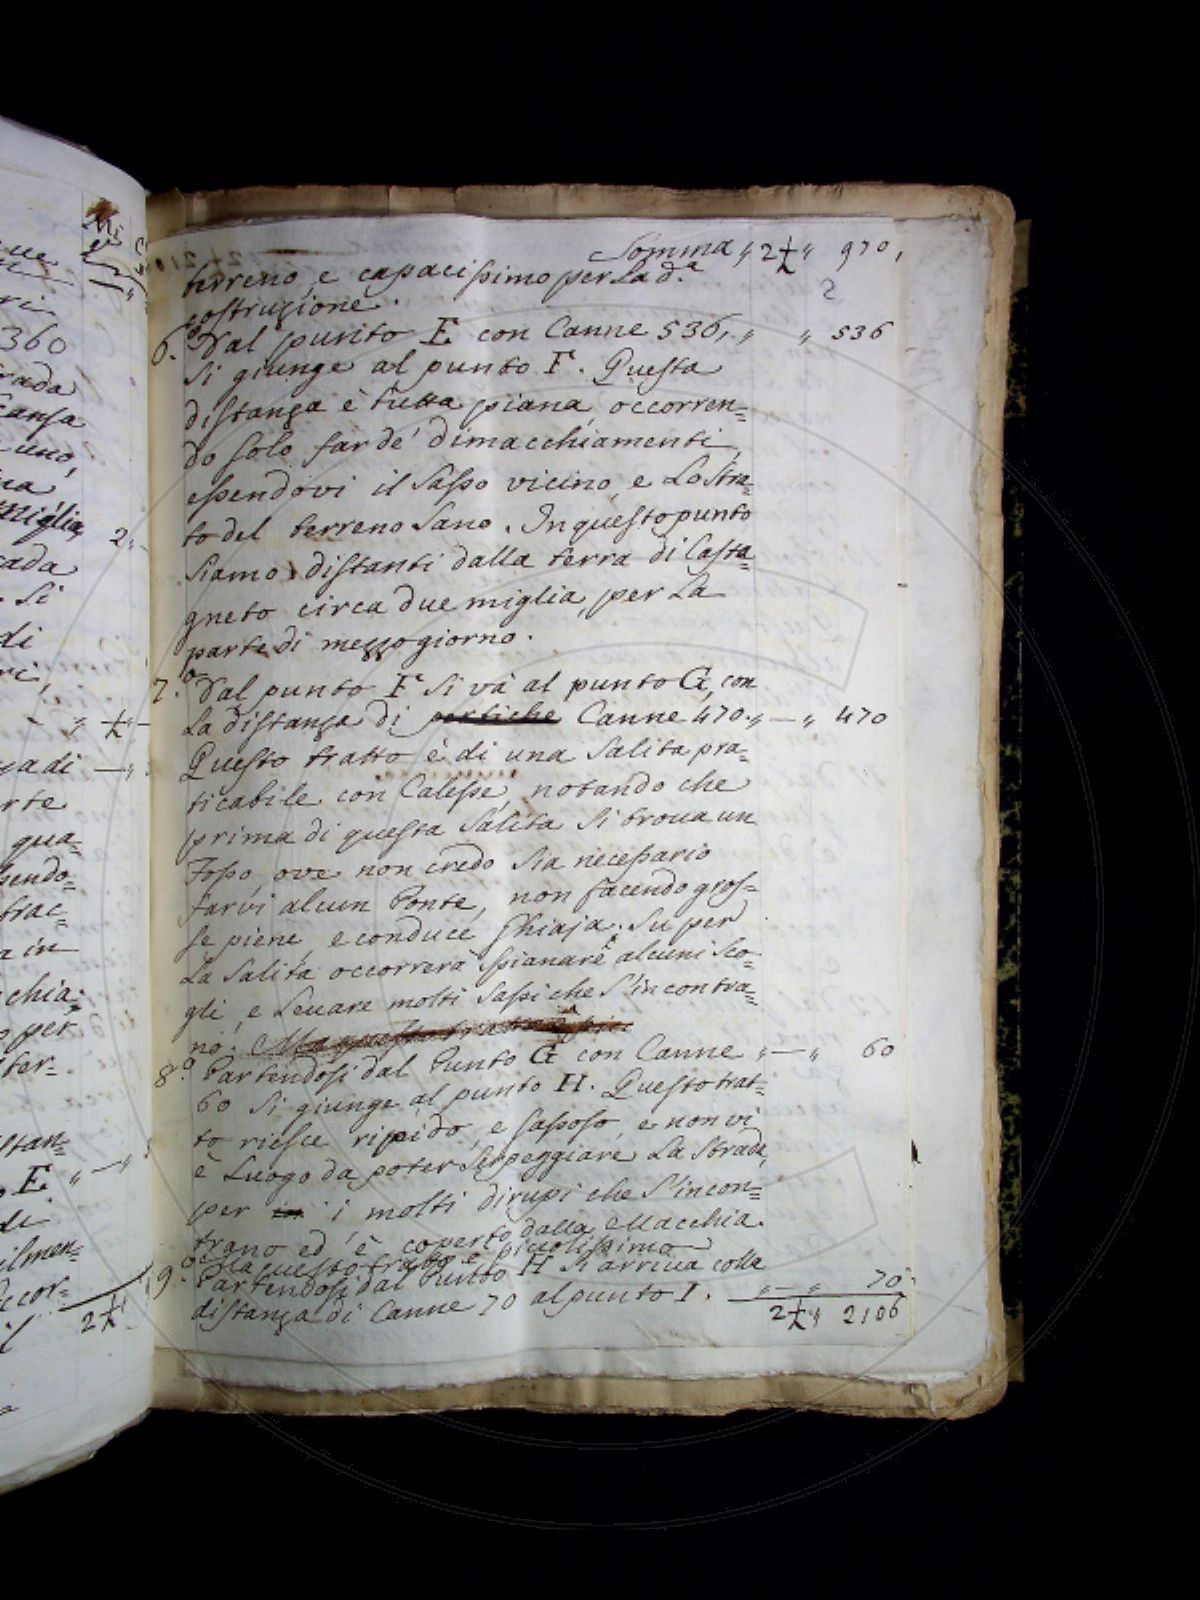 Somma „ 2½ „ 970,
terreno, e capacissimo per la d.ª
costruzione.
2
6.º Dal punto E con Canne 536, „ „ 536
si giunge al punto F. Questa
distanza è tutta piana, occorren=
do solo far de' dimacchiamenti,
essendovi il Sasso vicino, e lo Stra=
to del terreno Sano. In questo punto
siamo distanti dalla terra di Casta=
gneto circa due miglia, per la
parte di mezzogiorno.
7.º Dal punto F si và al punto G, con
la distanza di pertiche Canne 470. „ — „ 470
Questo tratto è di una Salita pra=
ticabile con Calesse, notando che
prima di questa Salita si trova un
Fosso, ove non credo sia necessario
farvi alcun Ponte, non facendo gros=
se piene, e conduce Ghiaja. Su per
la Salita occorrerà spianare alcuni Sco=
gli, e levare molti Sassi che s'incontra=
no. Ma questo tratto
8.º Partendosi dal Punto G con Canne „ — „ 60
60 si giunge al punto H. Questo trat=
to riesce ripido, e sassoso, e non vi
è Luogo da poter Serpeggiare la Strada,
per in i molti dirupi che s'incon=
trano ed è coperto dalla Macchia.
Ma questo tratto è piccolissimo
9.º Partendosi dal Punto H si arriva colla
distanza di Canne 70 al punto I. „ — „ 70
2½ „ 2106
Mi
360
rada
uno,
miglia, 2 „
cada
si
di
„ ½ —
ya di — „
rte
qua=
sendo=
trac=
a in
chia.
per
ter=
stan=
E. „ — „
di
ilmen=
ccor=
2½